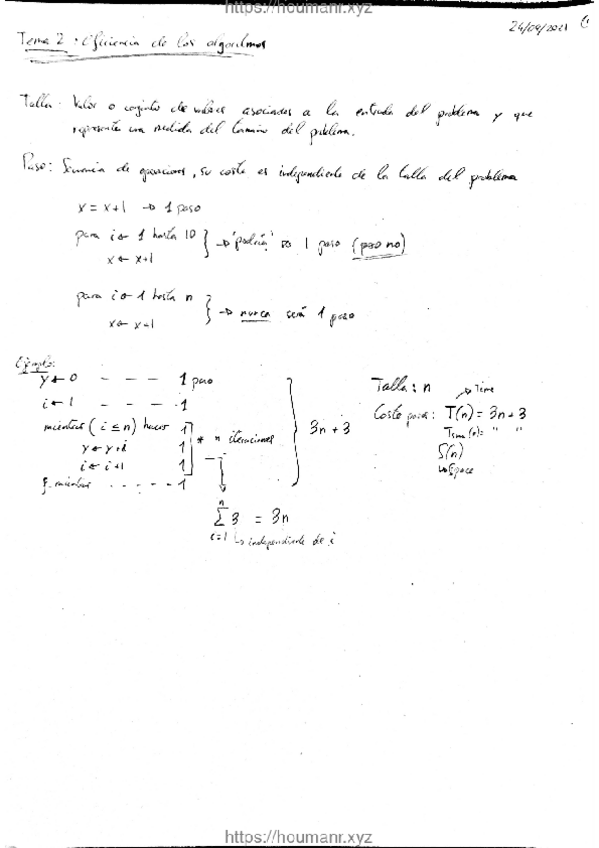 https://houmanr.xyz
24/09/2021 1
Tema 2: Eficiencia de los algoritmos
Talla: Valor o conjunto de valores asociados a la entrada del problema y que
representa una medida del tamaño del problema.
Paso: Secuencia de operaciones, su coste es independiente de la talla del problema
x = x+1 → 1 paso
para i ← 1 hasta 10
x ← x+1
} → "podría" ser 1 paso (pero no)
para i ← 1 hasta n
x ← x+1
} → nunca será 1 paso
Ejemplo:
y ← 0 - - - 1 paso
i ← 1 - - - - 1
mientras (i ≤ n) hacer 1
y ← y+i 1
i ← i+1 1
* n iteraciones
f. mientras - - - - - 1
} 3n + 3
n
∑ 3 = 3n
i=1 ↳ independiente de i
Talla: n
→ Time
Coste : T(n) = 3n + 3
(n) = " "
S(n)
↳ Space
https://houmanr.xyz